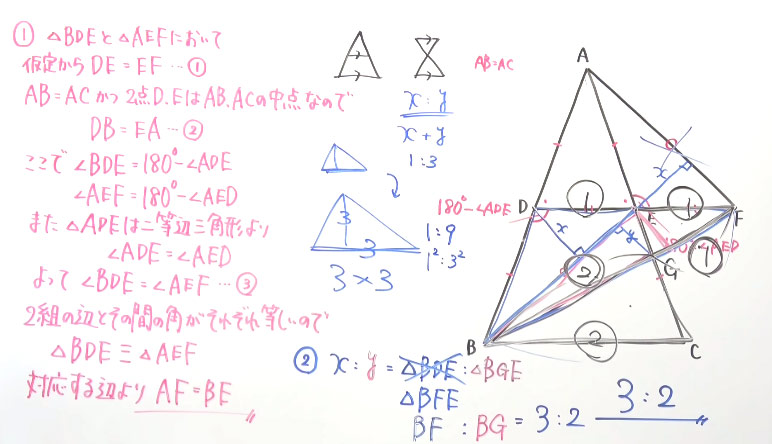 ① △BDEと△AEFにおいて
仮定から DE=EF…①
AB=ACかつ2点D.EはAB,ACの中点なので
DB=EA…②
ここで ∠BDE=180°-∠ADE
∠AEF=180°-∠AED
また△ADEは二等辺三角形より
∠ADE=∠AED
よって ∠BDE=∠AEF…③
2組の辺とその間の角がそれぞれ等しいので
△BDE≡△AEF
対応する辺より AF=BE
x:y
x+y
1:3
3
3
3×3
1:9
1²:3²
AB=AC
A
x
180°-∠ADE
D
1
E
1
F
x
y
2
G
B
2
C
② x:y=△BDE:△BGE
△BFE
BF:BG=3:2 3:2